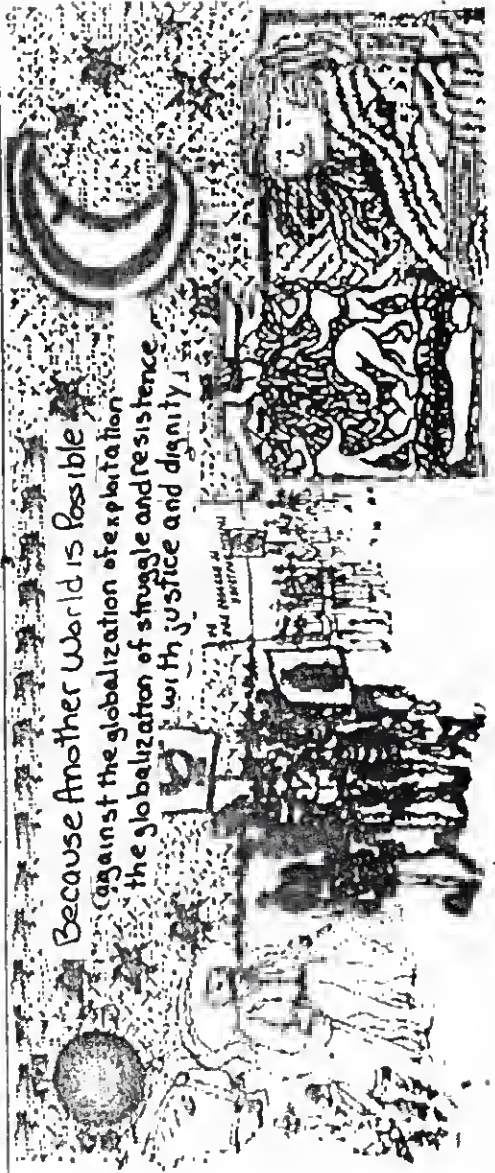 Because Another World is Posible
against the globalization of explotation
the globalization of struggle and resistence
with justice and dignity